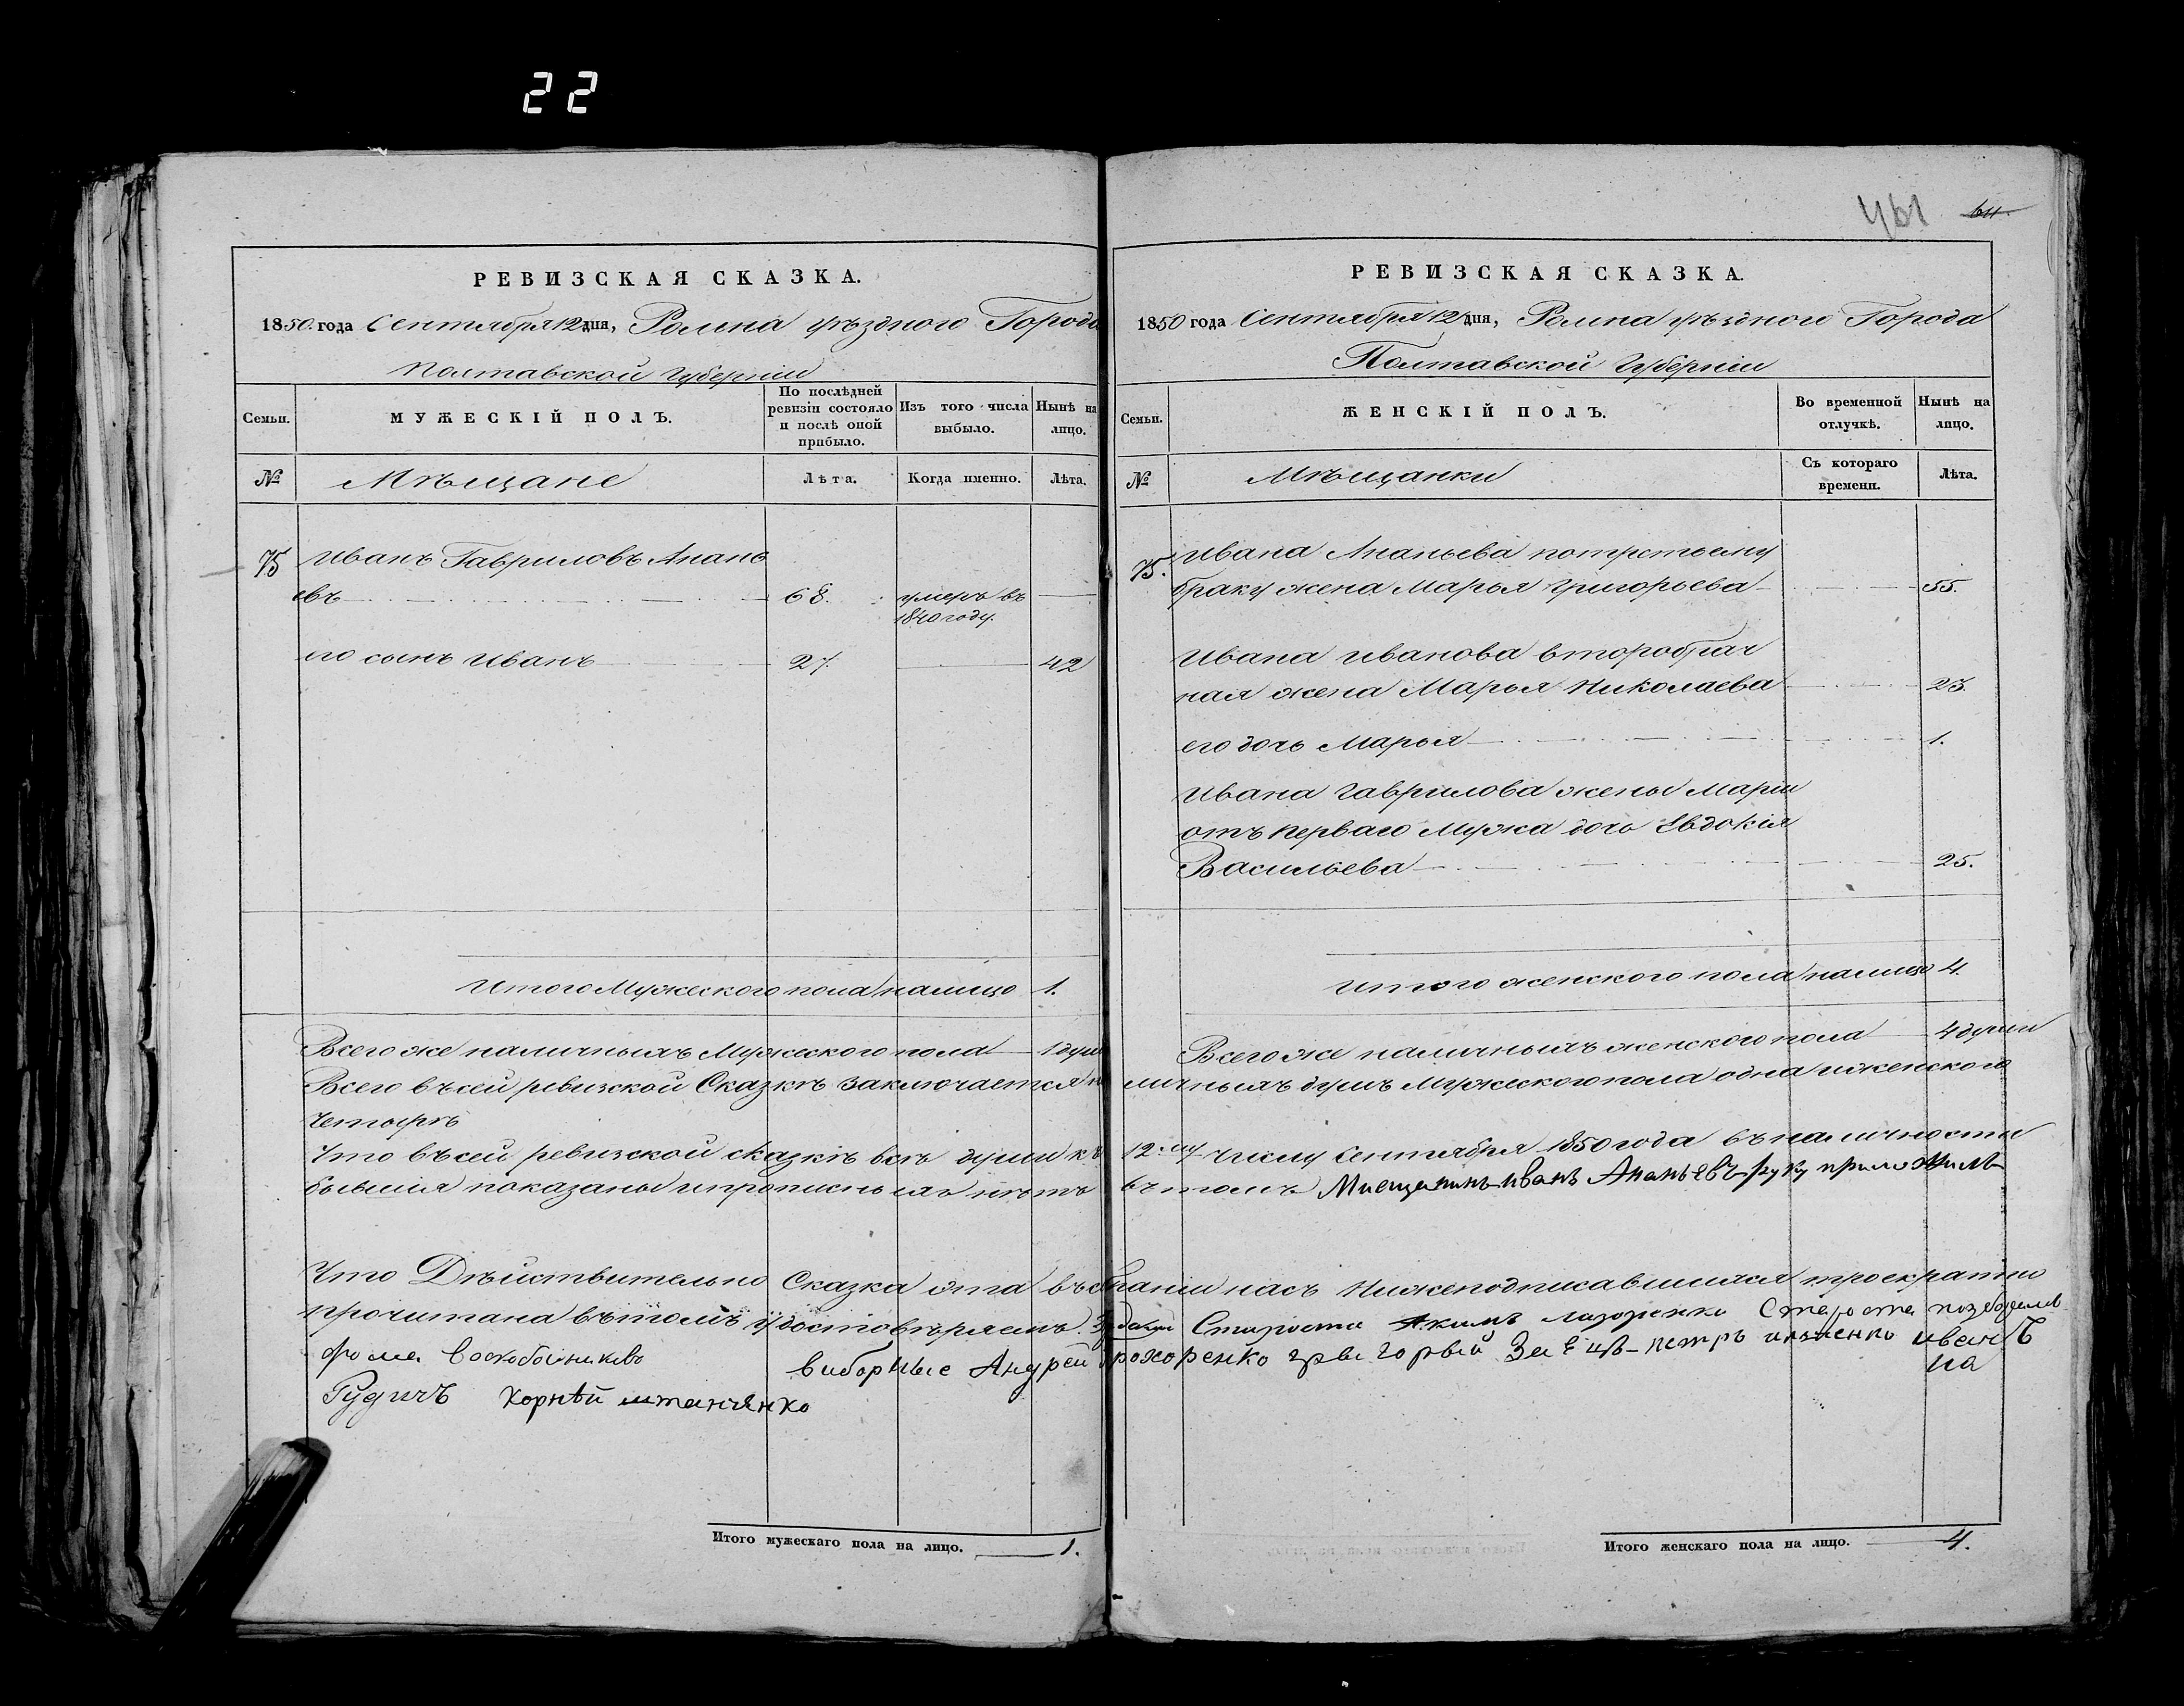 22
461 611.
РЕВИЗСКАЯ СКАЗКА.
1850 года Сентября 12 дня, Ромна уѣзднаго Города
Полтавской Губерніи
Семьи.
МУЖЕСКІЙ ПОЛЪ.
По послѣдней ревизіи состояло и послѣ оной прибыло.
Изъ того числа выбыло.
Нынѣ на лицо.
№
Мѣщане
Лѣта.
Когда именно.
Лѣта.
75
Иванъ Гавриловъ Анань
евъ 68. умеръ въ
1840 году.
его сынъ Иванъ 27. 42
Итого Мужеского пола налицо 1.
Всего же наличныхъ Мужеского пола 1 душ
РЕВИЗСКАЯ СКАЗКА.
1850 года Сентября 12 дня, Ромна уѣзного Города
Полтавской Губерніи
Семьи.
ЖЕНСКІЙ ПОЛЪ.
Во временной отлучкѣ.
Нынѣ на лицо.
№
Мѣщанки
Съ котораго времени.
Лѣта.
75.
Ивана Ананьева потретьему
браку жена Марья Григорьева 55.
Ивана Иванова второбрач
ная жена Марья Николаева 23.
его дочь Марья 1.
Ивана Гаврилова жены Маріи
отъ перваго мужа дочь Евдокія
Васильева 25.
Итого женского пола налицо 4.
Всего же наличныхъ женского пола 4 души
Всего въ сей ревизской Сказкѣ заключается на личныхъ душъ Мужеского пола одна и женского
четыре
Что въ сей ревизской сказкѣ всѣ души къ 12му числу Сентября 1850 года въ наличности
бывшія показаны и прописныхъ нѣтъ въ томъ Мисщанинъ Иванъ Ананьевъ руку приложилъ
Что Дѣйствительно Сказка эта въ собраніи насъ Нижеподписавшихся троекратно
прочитана въ томъ удостовѣряемъ. Староста Акимъ Староста
фома Воскобойниковъ виборные Андрей Петръ иванъ
Рудичъ Корнѣй
Итого мужескаго пола на лицо. 1.
Итого женскаго пола на лицо. 4.